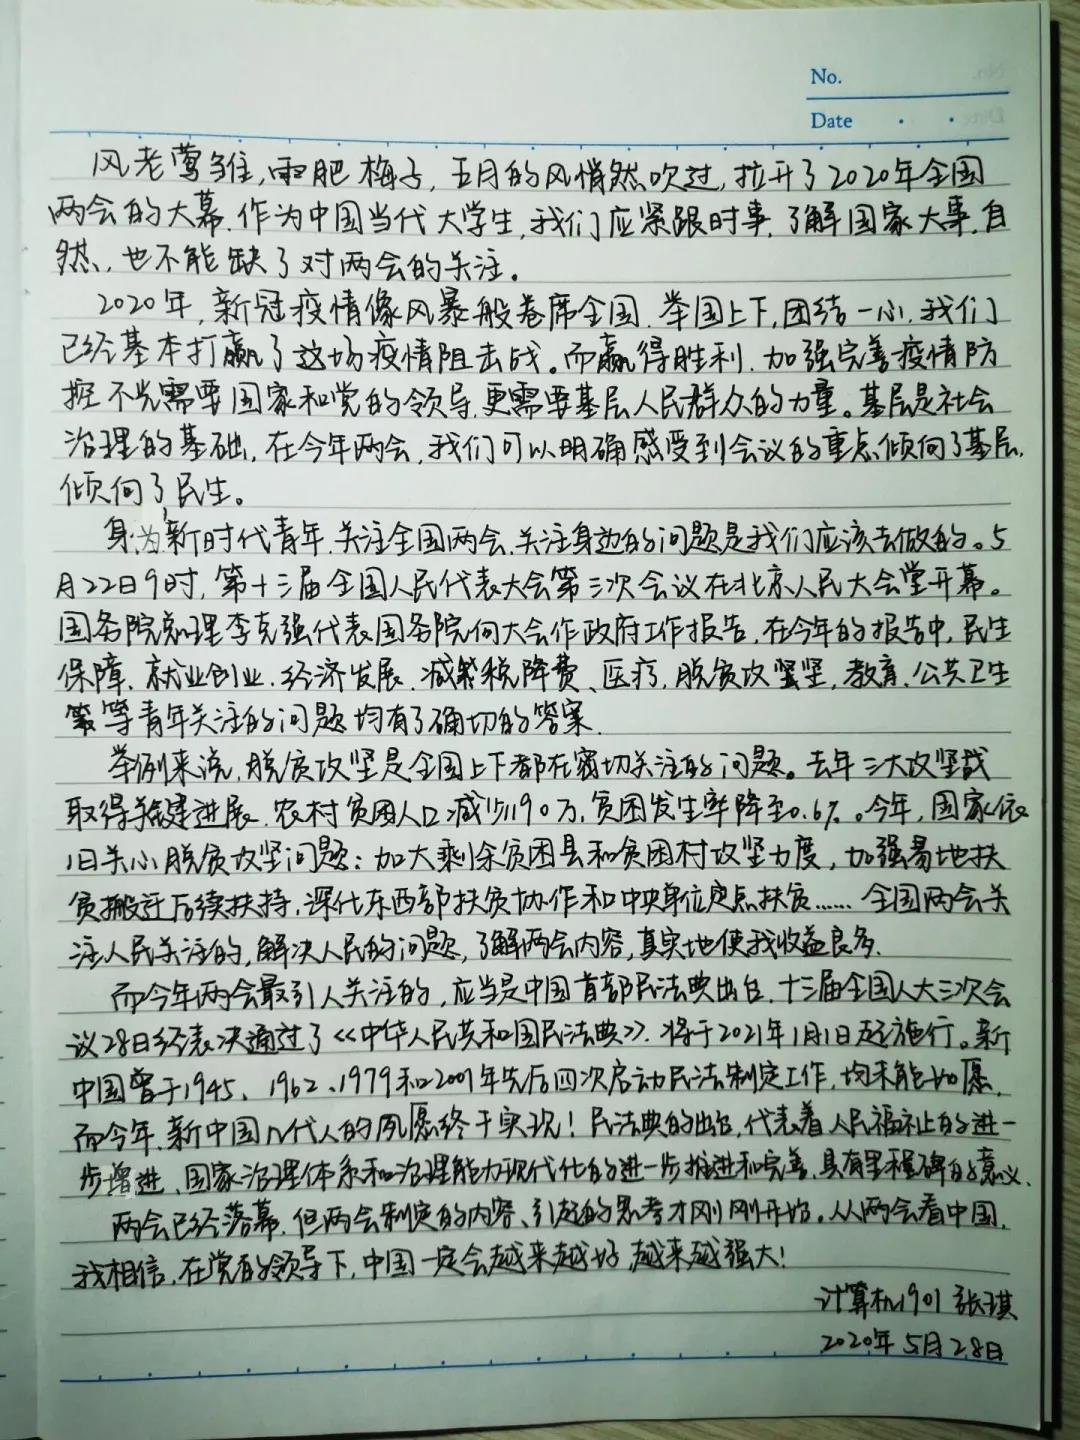 No.
Date
风老莺雏,雨肥梅子,五月的风悄然吹过,拉开了2020年全国
两会的大幕.作为中国当代大学生,我们应紧跟时事,了解国家大事,自
然,也不能缺了对两会的关注。
2020年,新冠疫情像风暴般卷席全国.举国上下,团结一心,我们
已经基本打赢了这场疫情阻击战。而赢得胜利,加强完善疫情防
控不光需要国家和党的领导,更需要基层人民群众的力量。基层是社会
治理的基础,在今年两会,我们可以明确感受到会议的重点倾向了基层,
倾向了民生。
身为新时代青年,关注全国两会,关注身边的问题是我们应该去做的。5
月22日9时,第十三届全国人民代表大会第三次会议在北京人民大会堂开幕。
国务院总理李克强代表国务院向大会作政府工作报告,在今年的报告中,民生
保障、就业创业、经济发展、减税降费、医疗、脱贫攻坚、教育、公共卫生
等青年关注的问题均有了确切的答案.
举例来说,脱贫攻坚是全国上下都在密切关注的问题。去年三大攻坚战
取得关键进展.农村贫困人口减少1190万,贫困发生率降至0.6%。今年,国家依
旧关心脱贫攻坚问题:加大剩余贫困县和贫困村攻坚力度,加强易地扶
贫搬迁后续扶持,深化东西部扶贫协作和中央单位定点扶贫……全国两会关
注人民关注的,解决人民的问题,了解两会内容,真实地使我收益良多.
而今年两会最引人关注的,应当是中国首部民法典出台.十三届全国人大三次会
议28日经表决通过了《中华人民共和国民法典》.将于2021年1月1日起施行。新
中国曾于1945、1962、1979和2001年先后四次启动民法制定工作,均未能如愿,
而今年,新中国几代人的夙愿终于实现!民法典的出台,代表着人民福祉的进一
步增进、国家治理体系和治理能力现代化的进一步推进和完善,具有里程碑的意义.
两会已经落幕,但两会制定的内容、引起的思考才刚刚开始。从两会看中国,
我相信,在党的领导下,中国一定会越来越好,越来越强大!
计算机1901 张琪
2020年5月28日